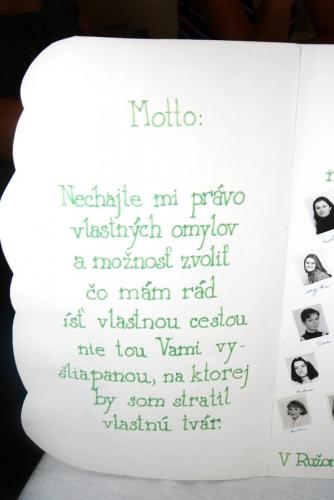 Motto:
Nechajte mi právo
vlastných omylov
a možnosť zvoliť
čo mám rád
ísť vlastnou cestou
nie tou Vami vy-
šliapanou, na ktorej
by som stratil
vlastnú tvár.
V Ružom